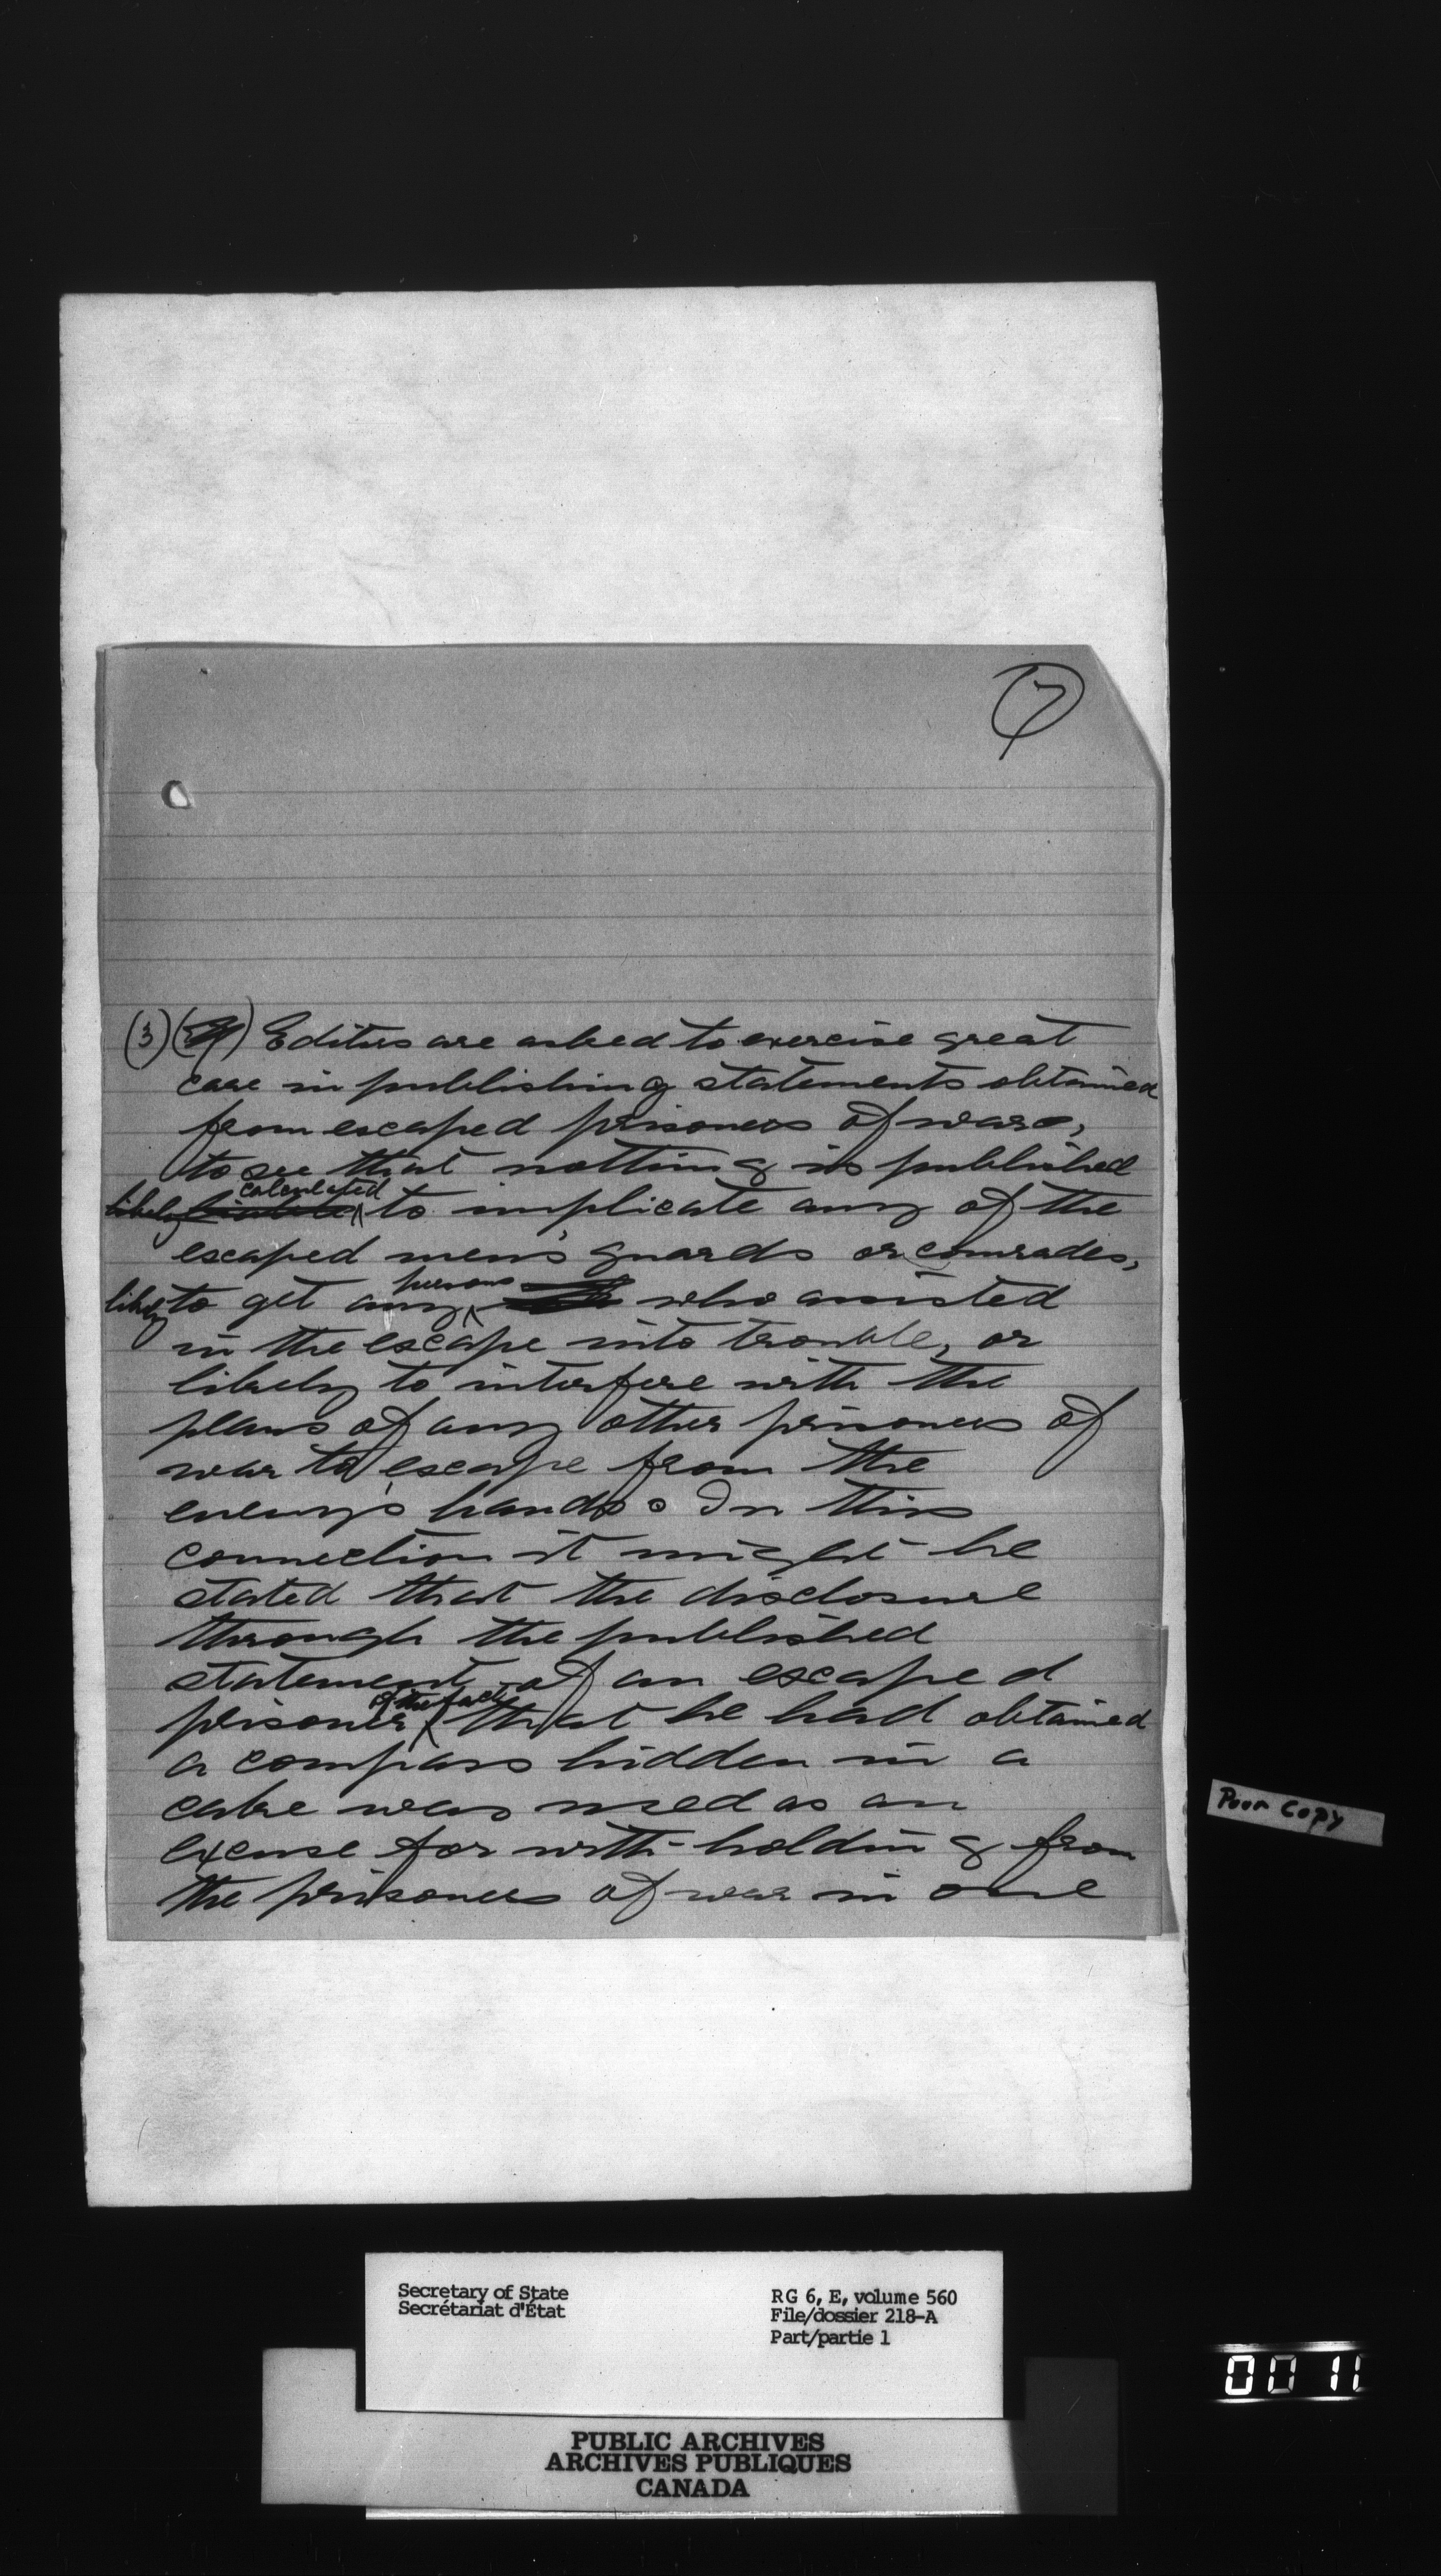 7
(3) Editors are asked to exercise great
care in publishing statements obtained
from escaped prisoners of war,
to see that nothing is published
likely calculated to implicate any of the
escaped men's guards or comrades,
likely to get any persons who assisted
in the escape into trouble, or
likely to interfere with the
plans of any other prisoners of
war to escape from the
enemy's hands. In this
connection it might be
stated that the disclosure
through the published
statement of an escaped
prisoner of the fact that he had obtained
a compass hidden in a
cake was used as an
excuse for with-holding from
the prisoners of war in one
Poor Copy
Secretary of State
Secrétariat d'État
RG 6, E, volume 560
File/dossier 218-A
Part/partie 1
0011
PUBLIC ARCHIVES
ARCHIVES PUBLIQUES
CANADA